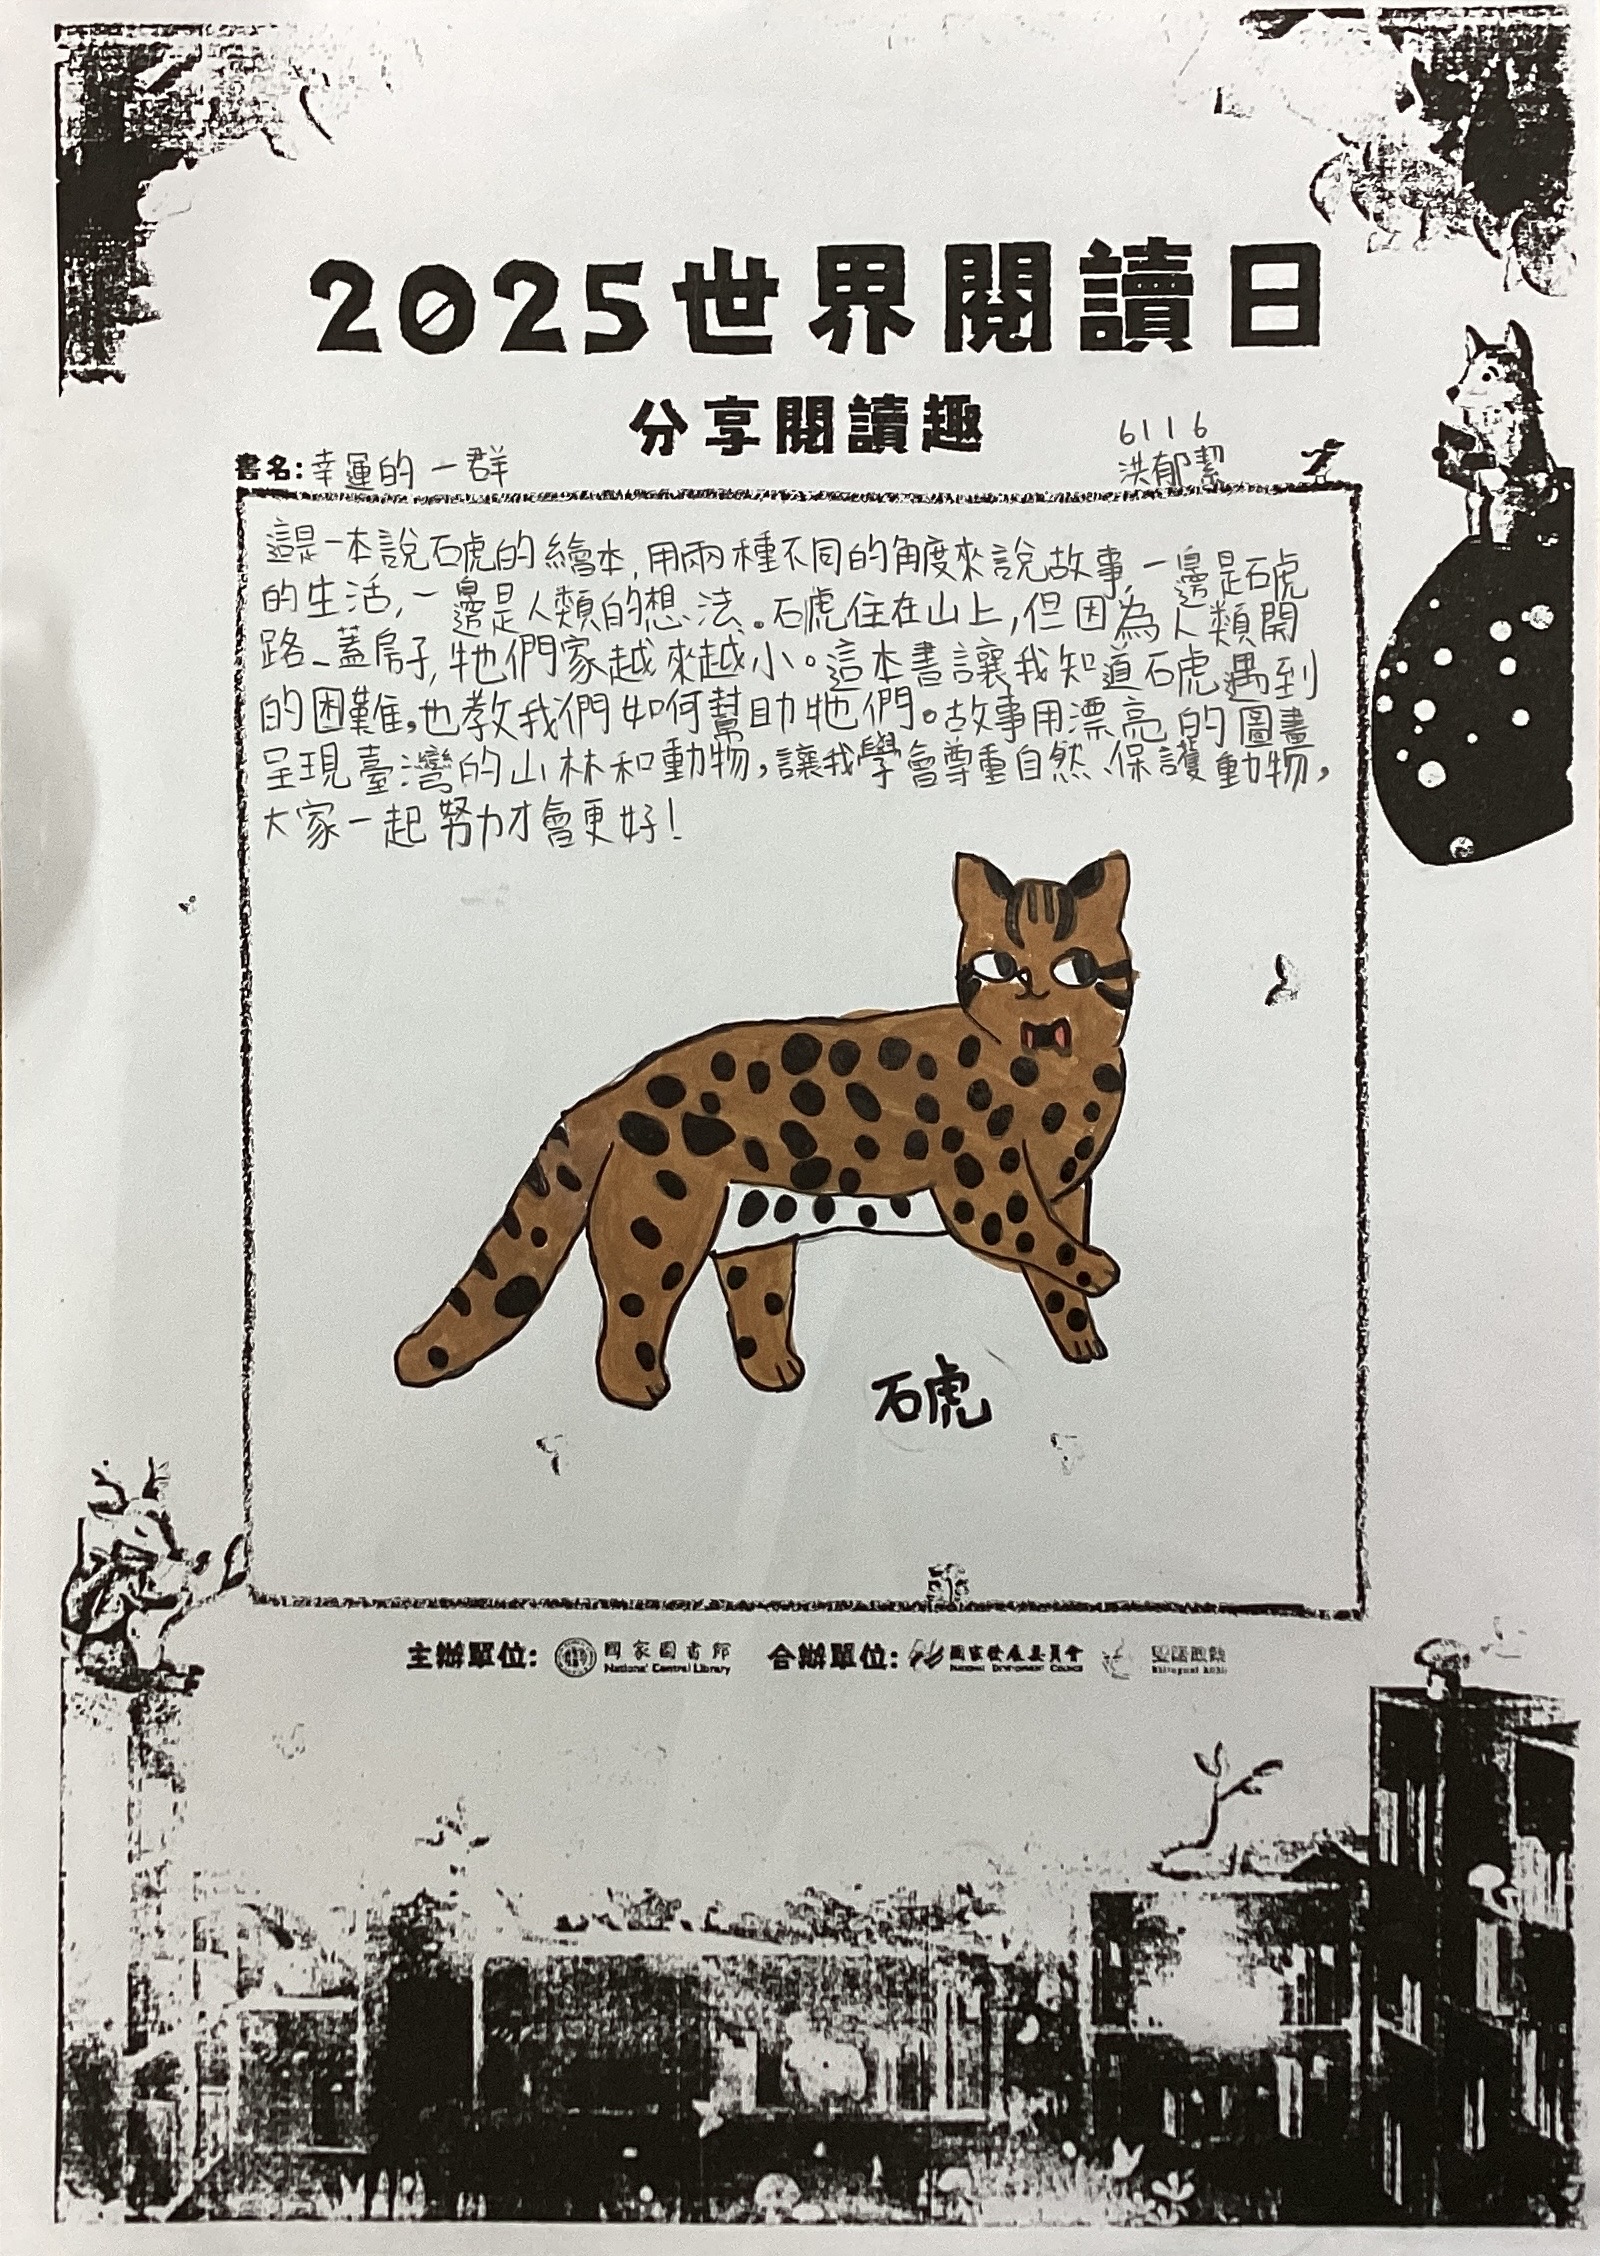 2025世界閱讀日
分享閱讀趣
6116
書名:幸運的一群
洪郁絜
這是一本說石虎的繪本,用兩種不同的角度來說故事,一邊是石虎
的生活,一邊是人類的想法。石虎住在山上,但因為人類開
路、蓋房子,牠們家越來越小。這本書讓我知道石虎遇到
的困難,也教我們如何幫助牠們。故事用漂亮的圖畫
呈現臺灣的山林和動物,讓我學會尊重自然、保護動物,
大家一起努力才會更好!
石虎
主辦單位: 國家圖書館 National Central Library 合辦單位: 國家發展委員會 NATIONAL DEVELOPMENT COUNCIL